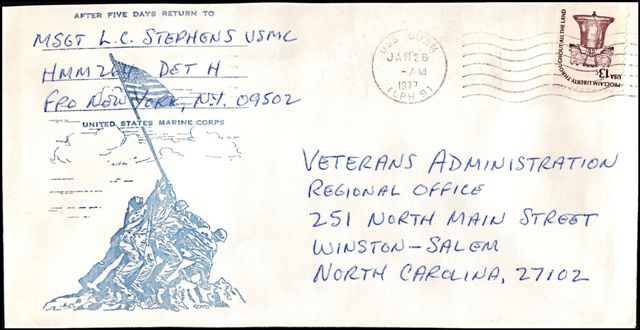 AFTER FIVE DAYS RETURN TO
MSGT L.C. STEPHENS USMC
DET H
FPO NEW YORK, N.Y. 09502
UNITED STATES MARINE CORPS
USS GUAM
JAN 26
-AM
1977
(LPH 9)
PROCLAIM LIBERTY THROUGHOUT ALL THE LAND
USA 13c
VETERANS ADMINISTRATION
REGIONAL OFFICE
251 NORTH MAIN STREET
WINSTON-SALEM
NORTH CAROLINA, 27102